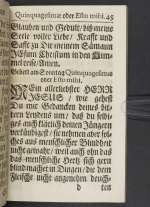 Quinquagesimæ oder Esto mihi. 45
Glauben und Gedult, biß meine
Seele voller Liebe, Krafft und
Safft zu Dir meinem Bräutigam
JEsum Christum in den Him-
mel reise, Amen.
Gebett am Sonntag Quinquagesimæ
oder Esto mihi.
MEin allerliebster HERR
JESUS, wie gehest
Du mit Gedancken deines bit-
tern Leydens um, daß du selbi-
ges auch klärlich deinen Jüngern
verkündigest, sie nehmen aber sol-
ches aus menschlicher Blindheit
nicht gewahr, weil auch ohn das
das menschliche Hertz sich gern
blind machet in Dingen, die dem
Fleische nicht angenehm deuch-
ten